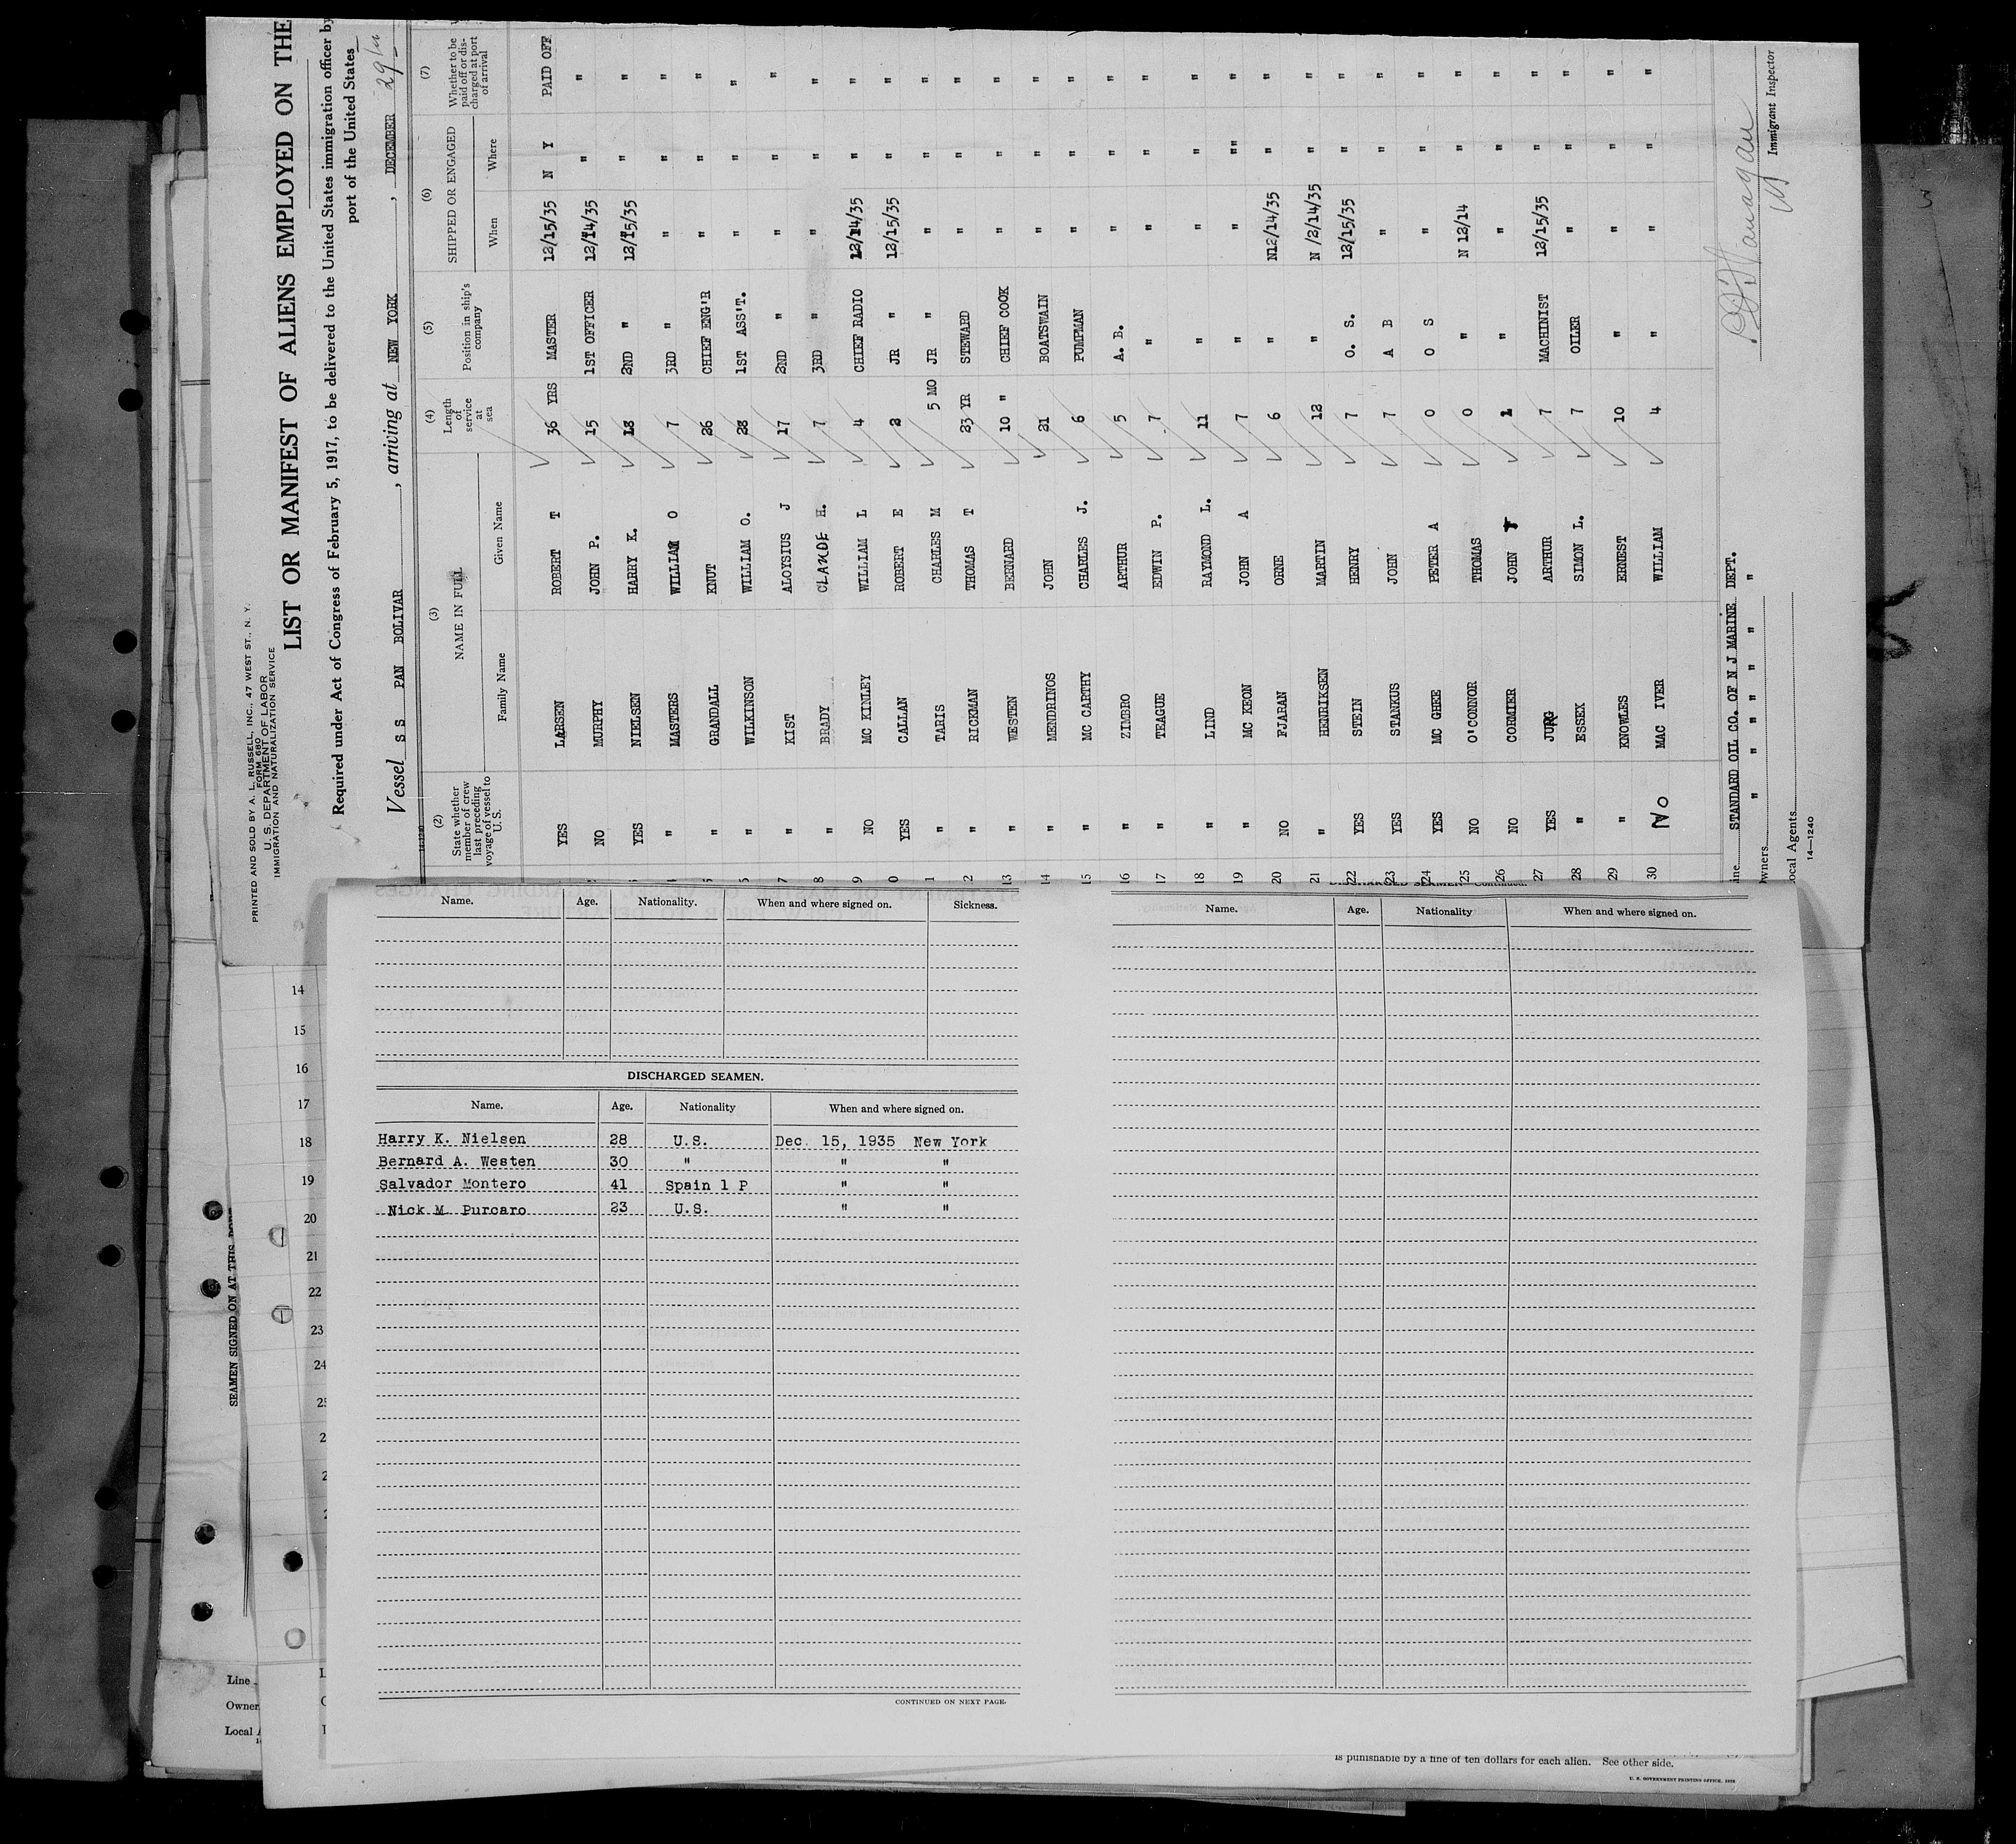 PRINTED AND SOLD BY A. L. RUSSELL, INC., 47 WEST ST., N. Y.
FORM 680
U. S. DEPARTMENT OF LABOR
IMMIGRATION AND NATURALIZATION SERVICE
LIST OR MANIFEST OF ALIENS EMPLOYED ON THE
Required under Act of Congress of February 5, 1917, to be delivered to the United States immigration officer by
port of the United States
Vessel S S PAN BOLIVAR, arriving at NEW YORK, DECEMBER 29
(2) (3) (4) (5) (6) (7)
State whether member of crew last preceding voyage of vessel to U. S. NAME IN FULL Family Name Given Name Length of service at sea Position in ship's company SHIPPED OR ENGAGED When Where Whether to be paid off or discharged at port of arrival
YES LARSEN ROBERT T 36 YRS MASTER 12/15/35 N Y PAID OFF
NO MURPHY JOHN P. 15 1ST OFFICER 12/14/35 " "
YES NIELSEN HARRY K. 2ND " 12/15/35 " "
" MASTERS WILLIAM O 7 3RD " " " "
" GRANDALL KNUT 26 CHIEF ENG'R " " "
" WILKINSON WILLIAM O. 28 1ST ASS'T. " " "
7 " KIST ALOYSIUS J 17 2ND " " " "
8 " BRADY CLAUDE H. 7 3RD " " " "
9 NO MC KINLEY WILLIAM L 4 CHIEF RADIO 12/14/35 " "
0 YES CALLAN ROBERT E 2 JR " 12/15/35 " "
1 " TARIS CHARLES M 5 MO JR " " " "
2 " RICKMAN THOMAS T 23 YR STEWARD " " "
13 " WESTEN BERNARD 10 " CHIEF COOK " " "
14 " MENDRINOS JOHN 21 BOATSWAIN " " "
15 " MC CARTHY CHARLES J. 6 PUMPMAN " " "
16 " ZIMBRO ARTHUR 5 A. B. " " "
17 " TEAGUE EDWIN P. 7 " " " "
18 " LIND RAYMOND L. 11 " " " "
19 " MC KEON JOHN A 7 " " "" "
20 NO FJARAN ORNE 6 " N12/14/35 " "
21 " HENRIKSEN MARTIN 12 " N 12/14/35 " "
22 YES STEIN HENRY 7 O. S. 12/15/35 " "
23 YES STANKUS JOHN 7 A B " " "
24 YES MC GHEE PETER A 0 O S " " "
25 NO O'CONNOR THOMAS 0 " N 12/14 " "
26 NO CORMIER JOHN " " " "
27 YES JUNG ARTHUR 7 MACHINIST 12/15/35 " "
28 " ESSEX SIMON L. 7 OILER " " "
29 " KNOWLES ERNEST 10 " " " "
30 NO MAC IVER WILLIAM 4 " " " "
Line STANDARD OIL CO. OF N J MARINE DEPT.
Owners " " " " " " " "
Local Agents
14—1240
Immigrant Inspector
Name. Age. Nationality. When and where signed on. Sickness.
DISCHARGED SEAMEN.
Name. Age. Nationality When and where signed on.
Harry K. Nielsen 28 U.S. Dec. 15, 1935 New York
Bernard A. Westen 30 " " "
Salvador Montero 41 Spain 1 P " "
Nick M. Purcaro 23 U.S. " "
CONTINUED ON NEXT PAGE.
DISCHARGED SEAMEN—Continued.
Name. Age. Nationality When and where signed on.
14
15
16
17
18
19
20
21
22
23
24
SEAMEN SIGNED ON AT THIS PORT
Line
Owner
Local A
is punishable by a fine of ten dollars for each alien. See other side.
U. S. GOVERNMENT PRINTING OFFICE.